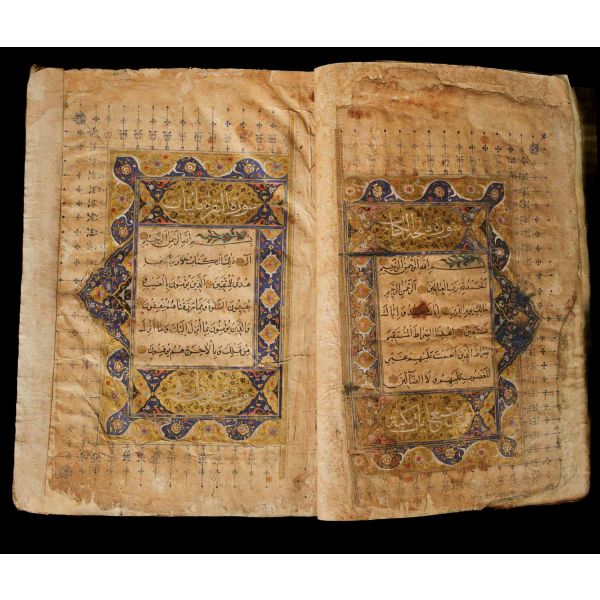 سورة فاتحة الكتاب
بسم الله الرحمن الرحيم
الحمد لله رب العالمين الرحمن الرحيم
ملك يوم الدين اياك نعبد و اياك
نستعين اهدنا الصراط المستقيم
صراط الذين انعمت عليهم غير
المغضوب عليهم ولا الضالين
سبع ايات مكية
سورة البقرة مائتان
بسم الله الرحمن الرحيم
الم ذلك الكتاب لا ريب فيه
هدى للمتقين الذين يؤمنون بالغيب
ويقيمون الصلوة ومما رزقناهم ينفقون
والذين يؤمنون بما انزل اليك وما انزل
من قبلك وبالاخرة هم يوقنون